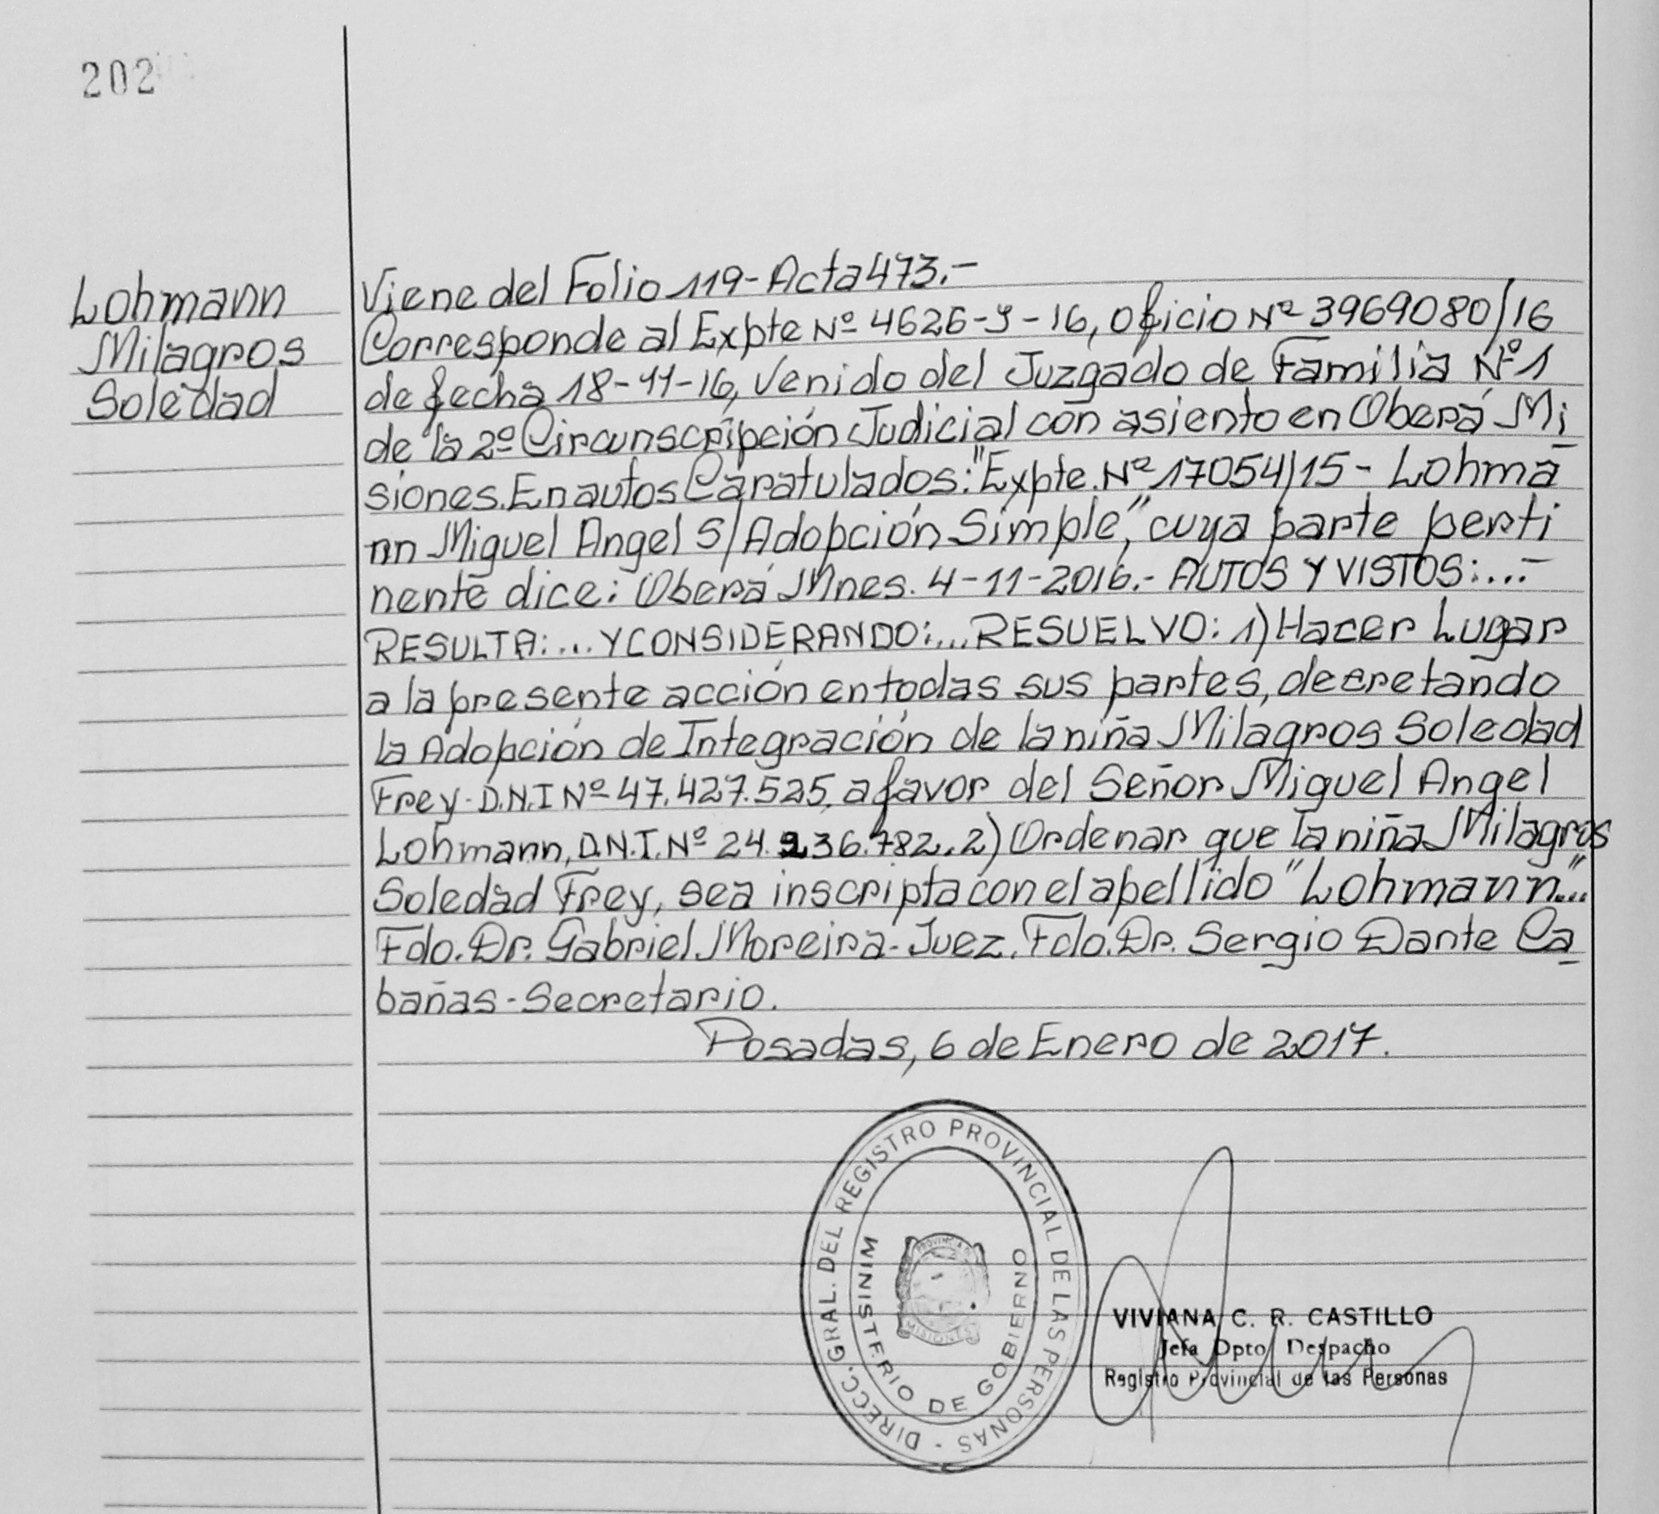 202
Lohmann
Milagros
Soledad
Viene del Folio 119-Acta 473.-
Corresponde al Expte Nº 4626-J-16, Oficio Nº 3969080/16
de fecha 18-11-16, Venido del Juzgado de Familia Nº 1
de la 2º Circunscripción Judicial con asiento en Oberá Mi
siones. En autos Caratulados: "Expte. Nº 17054/15 - Lohma
nn Miguel Angel S/Adopción Simple", cuya parte perti
nente dice: Oberá Mnes. 4-11-2016.- AUTOS Y VISTOS:...-
RESULTA:... Y CONSIDERANDO:... RESUELVO: 1) Hacer Lugar
a la presente acción en todas sus partes, decretando
la Adopción de Integración de la niña Milagros Soledad
Frey. D.N.I Nº 47.427.525, a favor del Señor Miguel Angel
Lohmann, D.N.I. Nº 24.236.782. 2) Ordenar que la niña Milagros
Soledad Frey, sea inscripta con el apellido "Lohmann"...
Fdo. Dr. Gabriel Moreira - Juez. Fdo. Dr. Sergio Dante Ca
bañas - Secretario.
Posadas, 6 de Enero de 2017.
DIRECC. GRAL. DEL REGISTRO PROVINCIAL DE LAS PERSONAS -
MINISTERIO DE GOBIERNO
PROVINCIA
MISIONES
VIVIANA C. R. CASTILLO
Jefa Dpto Despacho
Registro Provincial de las Personas